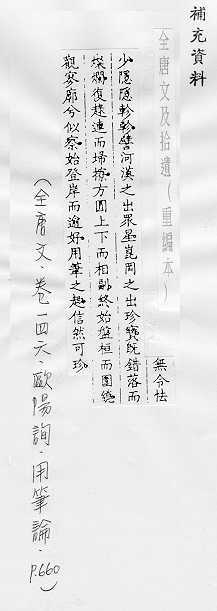 補充資料
全唐文及拾遺(重編本)
無令怯
少隱隱軫軫譬河漢之出眾星崑岡之出珍寶既錯落而
燦爛復趢連而埽撩方圓上下而相副終始盤桓而圍繞
觀寥廓兮似察始登岸而逾好用筆之趣信然可珍
(全唐文.卷一四六.歐陽詢.用筆論.P.660)